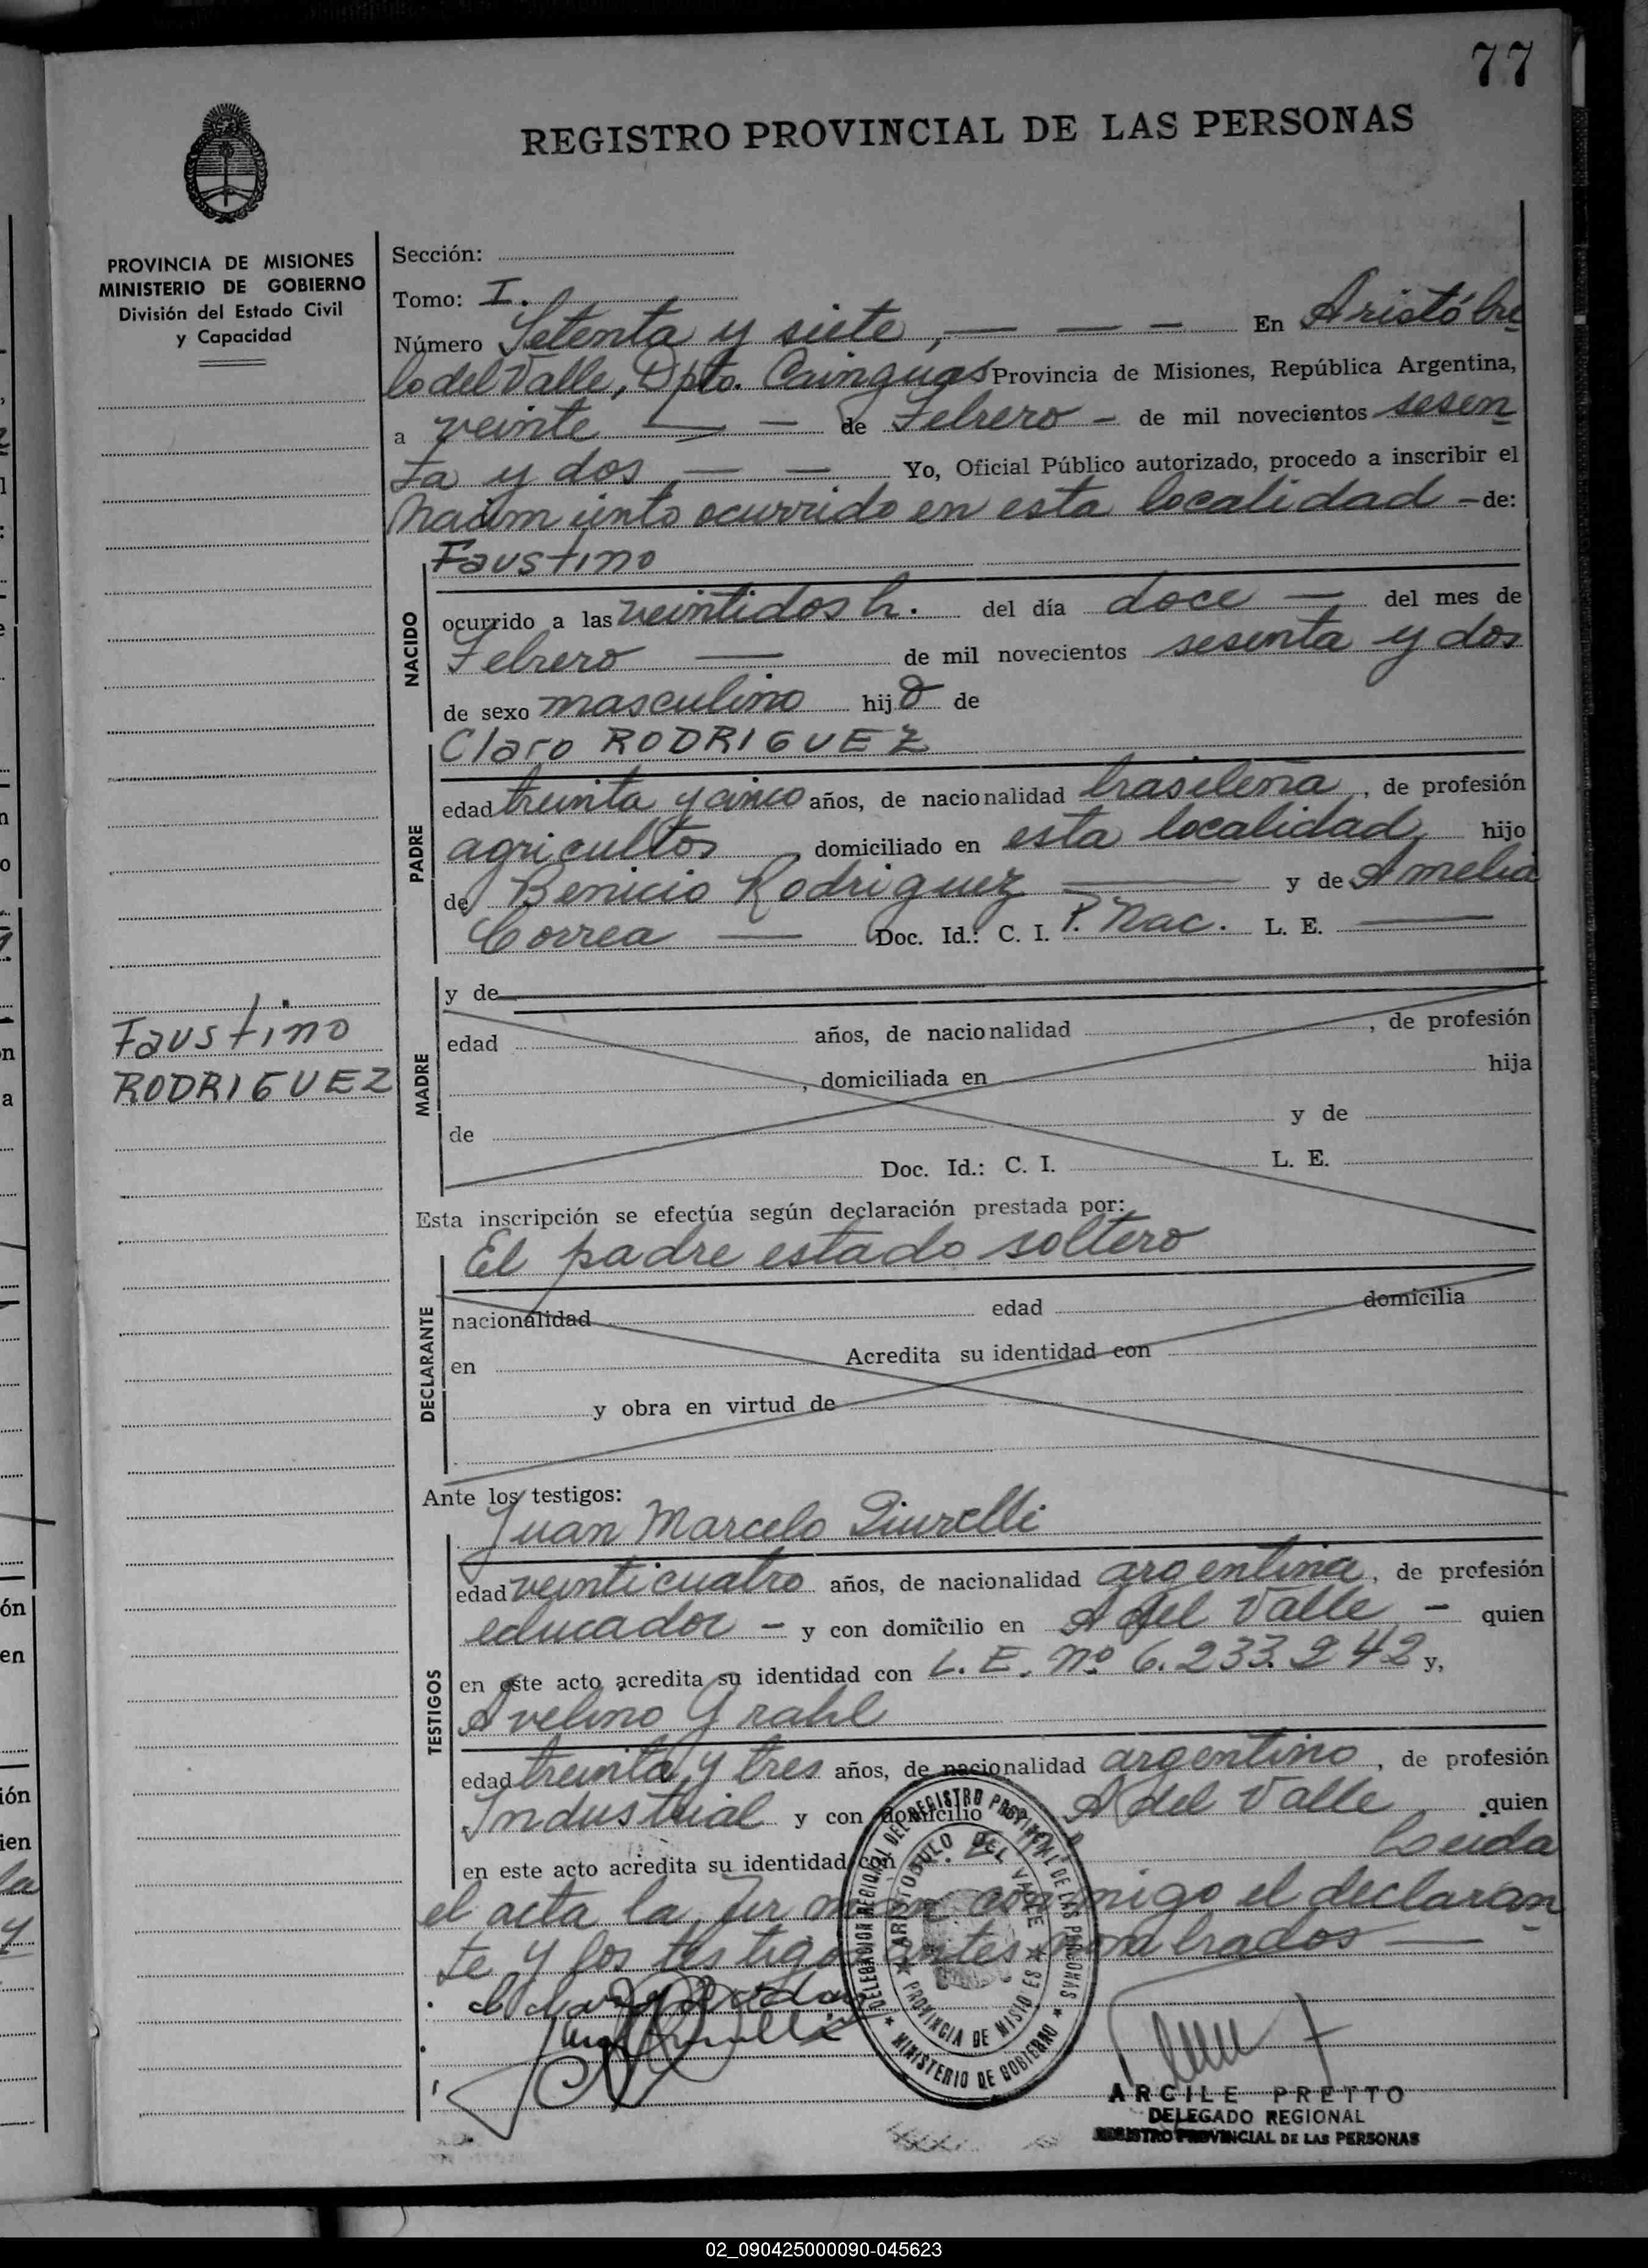 77
REGISTRO PROVINCIAL DE LAS PERSONAS
PROVINCIA DE MISIONES
MINISTERIO DE GOBIERNO
División del Estado Civil
y Capacidad
Faustino
RODRIGUEZ
Sección:
Tomo: I.
Número Setenta y siete, — — — En Aristóbu
lo del Valle, Dpto. Cainguas Provincia de Misiones, República Argentina,
a veinte — — de Febrero — de mil novecientos sesen
ta y dos — — Yo, Oficial Público autorizado, procedo a inscribir el
nacimiento ocurrido en esta localidad — de:
NACIDO
Faustino
ocurrido a las veintidos h. del día doce — del mes de
Febrero — de mil novecientos sesenta y dos
de sexo masculino hijo de
PADRE
Claro RODRIGUEZ
edad treinta y cinco años, de nacionalidad brasileña, de profesión
agricultor domiciliado en esta localidad, hijo
de Benicio Rodriguez — y de Amelia
Correa — Doc. Id.: C. I. P. Nac. L. E. —
MADRE
y de
edad años, de nacionalidad , de profesión
, domiciliada en hija
de y de
Doc. Id.: C. I. L. E.
Esta inscripción se efectúa según declaración prestada por:
DECLARANTE
El padre estado soltero
nacionalidad edad domicilia
en Acredita su identidad con
y obra en virtud de
Ante los testigos:
TESTIGOS
Juan Marcelo
edad veinticuatro años, de nacionalidad argentina, de profesión
educador — y con domicilio en A del Valle — quien
en este acto acredita su identidad con L. E. nº 6.233.242 y,
Avelino Grahl
edad treinta y tres años, de nacionalidad argentino, de profesión
Industrial y con domicilio A del Valle quien
en este acto acredita su identidad con Leida
el acta la firman conmigo el declaran
te y los testigos antes nombrados —
DELEGACION REGIONAL DEL REGISTRO PROVINCIAL DE LAS PERSONAS
★ MINISTERIO DE GOBIERNO ★
ARISTOBULO DEL VALLE
★ PROVINCIA DE MISIONES ★
ARCILE PRETTO
DELEGADO REGIONAL
REGISTRO PROVINCIAL DE LAS PERSONAS
02_090425000090-045623